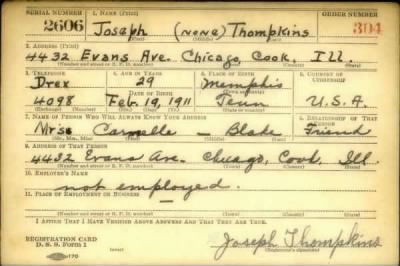 SERIAL NUMBER 1. NAME (Print) ORDER NUMBER
2606 Joseph (none) Thompkins 304
2. ADDRESS (Print)
4432 Evans Ave. Chicago, Cook, Ill.
3. TELEPHONE 4. AGE IN YEARS 5. PLACE OF BIRTH 6. COUNTRY OF CITIZENSHIP
Drex 29 Memphis
4098 DATE OF BIRTH Feb. 19, 1911 Tenn U.S.A.
7. NAME OF PERSON WHO WILL ALWAYS KNOW YOUR ADDRESS 8. RELATIONSHIP OF THAT PERSON
Mrs. Carmelle – Blake Friend
(Mr., Mrs., Miss) (First) (Middle) (Last)
9. ADDRESS OF THAT PERSON
4432 Evans Ave. Chicago, Cook, Ill.
(Number and street or R. F. D. number) (Town) (County) (State)
10. EMPLOYER'S NAME
not employed.
11. PLACE OF EMPLOYMENT OR BUSINESS
(Number and street or R. F. D. number) (Town) (County) (State)
I AFFIRM THAT I HAVE VERIFIED ABOVE ANSWERS AND THAT THEY ARE TRUE.
REGISTRATION CARD
D. S. S. Form 1 Joseph Thompkins